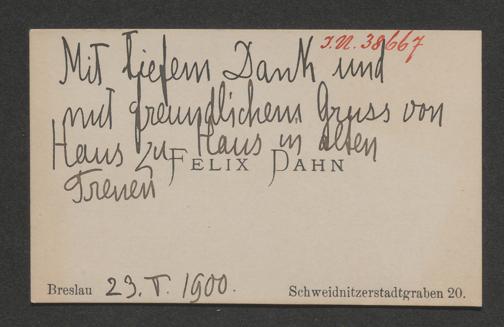 I.N. 38667
Mit tiefem Dank und
mit freundlichem Gruss von
Haus zu Haus in alten
FELIX DAHN
Treuen
Breslau 23. V. 1900.
Schweidnitzerstadtgraben 20.